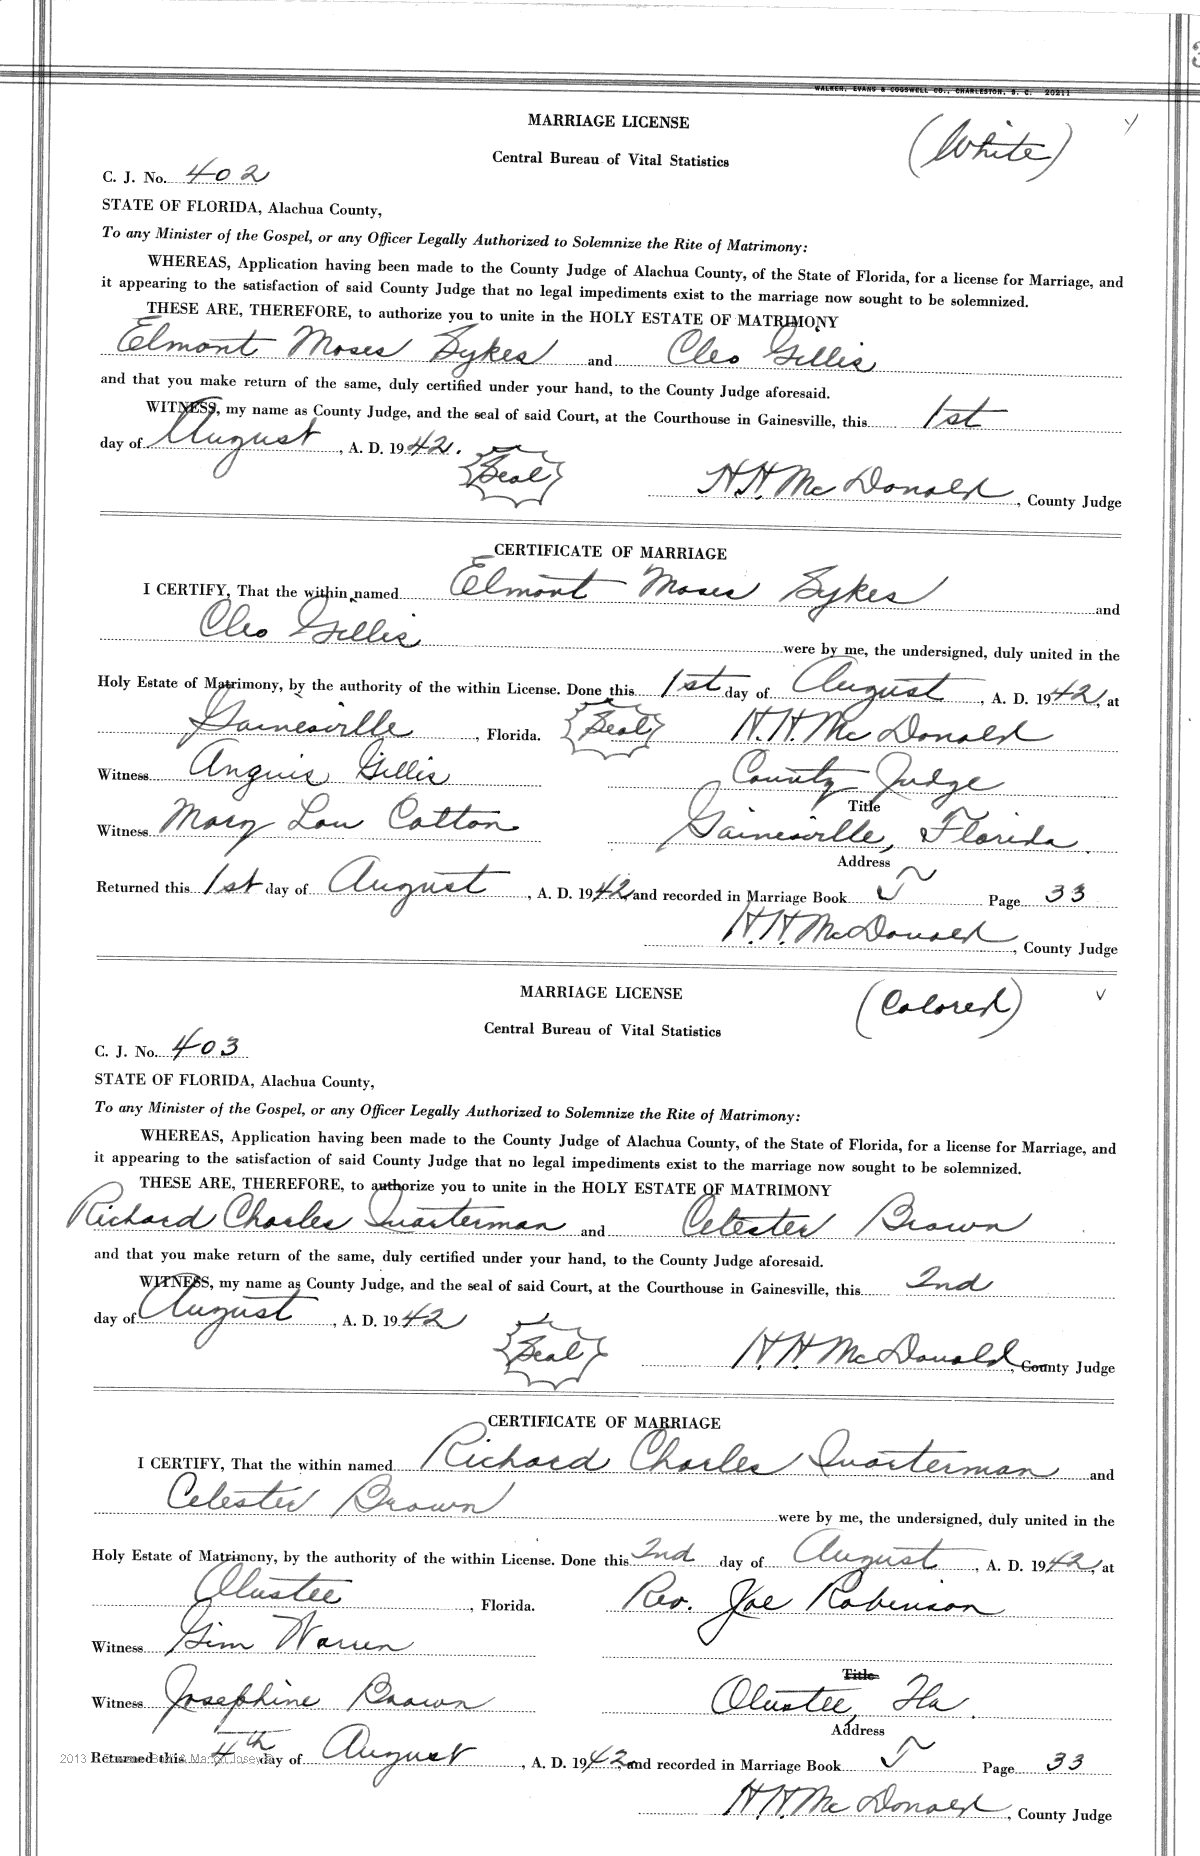 WALKER, EVANS & COGSWELL CO., CHARLESTON, S. C. 20211
MARRIAGE LICENSE
(White)
Central Bureau of Vital Statistics
C. J. No. 402
STATE OF FLORIDA, Alachua County,
To any Minister of the Gospel, or any Officer Legally Authorized to Solemnize the Rite of Matrimony:
WHEREAS, Application having been made to the County Judge of Alachua County, of the State of Florida, for a license for Marriage, and
it appearing to the satisfaction of said County Judge that no legal impediments exist to the marriage now sought to be solemnized.
THESE ARE, THEREFORE, to authorize you to unite in the HOLY ESTATE OF MATRIMONY
Elmont Moses Sykes and Cleo Gillis
and that you make return of the same, duly certified under your hand, to the County Judge aforesaid.
WITNESS, my name as County Judge, and the seal of said Court, at the Courthouse in Gainesville, this 1st
day of August, A. D. 1942.
Seal H. H. McDonald, County Judge
CERTIFICATE OF MARRIAGE
I CERTIFY, That the within named Elmont Moses Sykes and
Cleo Gillis were by me, the undersigned, duly united in the
Holy Estate of Matrimony, by the authority of the within License. Done this 1st day of August, A. D. 1942, at
Gainesville, Florida. Seal H. H. McDonald
Witness Anguis Gillis County Judge
Title
Witness Mary Lou Cotton Gainesville, Florida.
Address
Returned this 1st day of August, A. D. 1942 and recorded in Marriage Book J Page 33
H. H. McDonald, County Judge
MARRIAGE LICENSE
(Colored)
Central Bureau of Vital Statistics
C. J. No. 403
STATE OF FLORIDA, Alachua County,
To any Minister of the Gospel, or any Officer Legally Authorized to Solemnize the Rite of Matrimony:
WHEREAS, Application having been made to the County Judge of Alachua County, of the State of Florida, for a license for Marriage, and
it appearing to the satisfaction of said County Judge that no legal impediments exist to the marriage now sought to be solemnized.
THESE ARE, THEREFORE, to authorize you to unite in the HOLY ESTATE OF MATRIMONY
Richard Charles Quarterman and Celester Brown
and that you make return of the same, duly certified under your hand, to the County Judge aforesaid.
WITNESS, my name as County Judge, and the seal of said Court, at the Courthouse in Gainesville, this 2nd
day of August, A. D. 1942
Seal H. H. McDonald, County Judge
CERTIFICATE OF MARRIAGE
I CERTIFY, That the within named Richard Charles Quarterman and
Celester Brown were by me, the undersigned, duly united in the
Holy Estate of Matrimony, by the authority of the within License. Done this 2nd day of August, A. D. 1942, at
Olustee, Florida. Rev. Joe Robinson
Witness Gim Warren
Title
Witness Josephine Brown Olustee, Fla.
Address
Returned this 4th day of August, A. D. 1942 and recorded in Marriage Book J Page 33
H. H. McDonald, County Judge